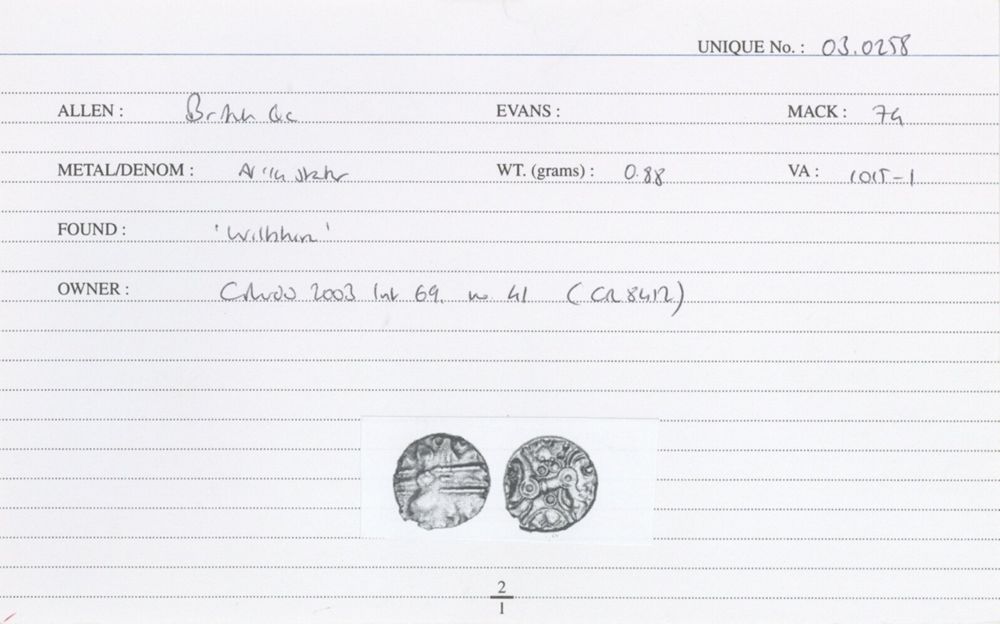 UNIQUE No. : 03.0258
ALLEN : British Qc EVANS : MACK : 74
METAL/DENOM : AV 1/4 stater WT. (grams) : 0.88 VA : 1015-1
FOUND : 'Wiltshire'
OWNER : 2003 list 69. no. 41 (CR 8412)
2
1